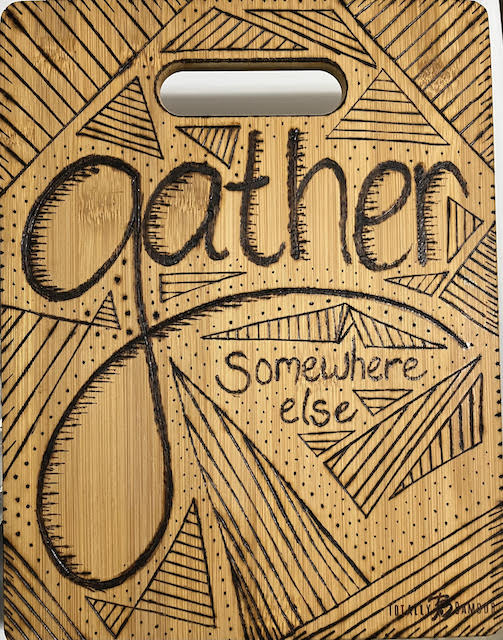 gather
Somewhere
else
TOTALLY BAMBOO